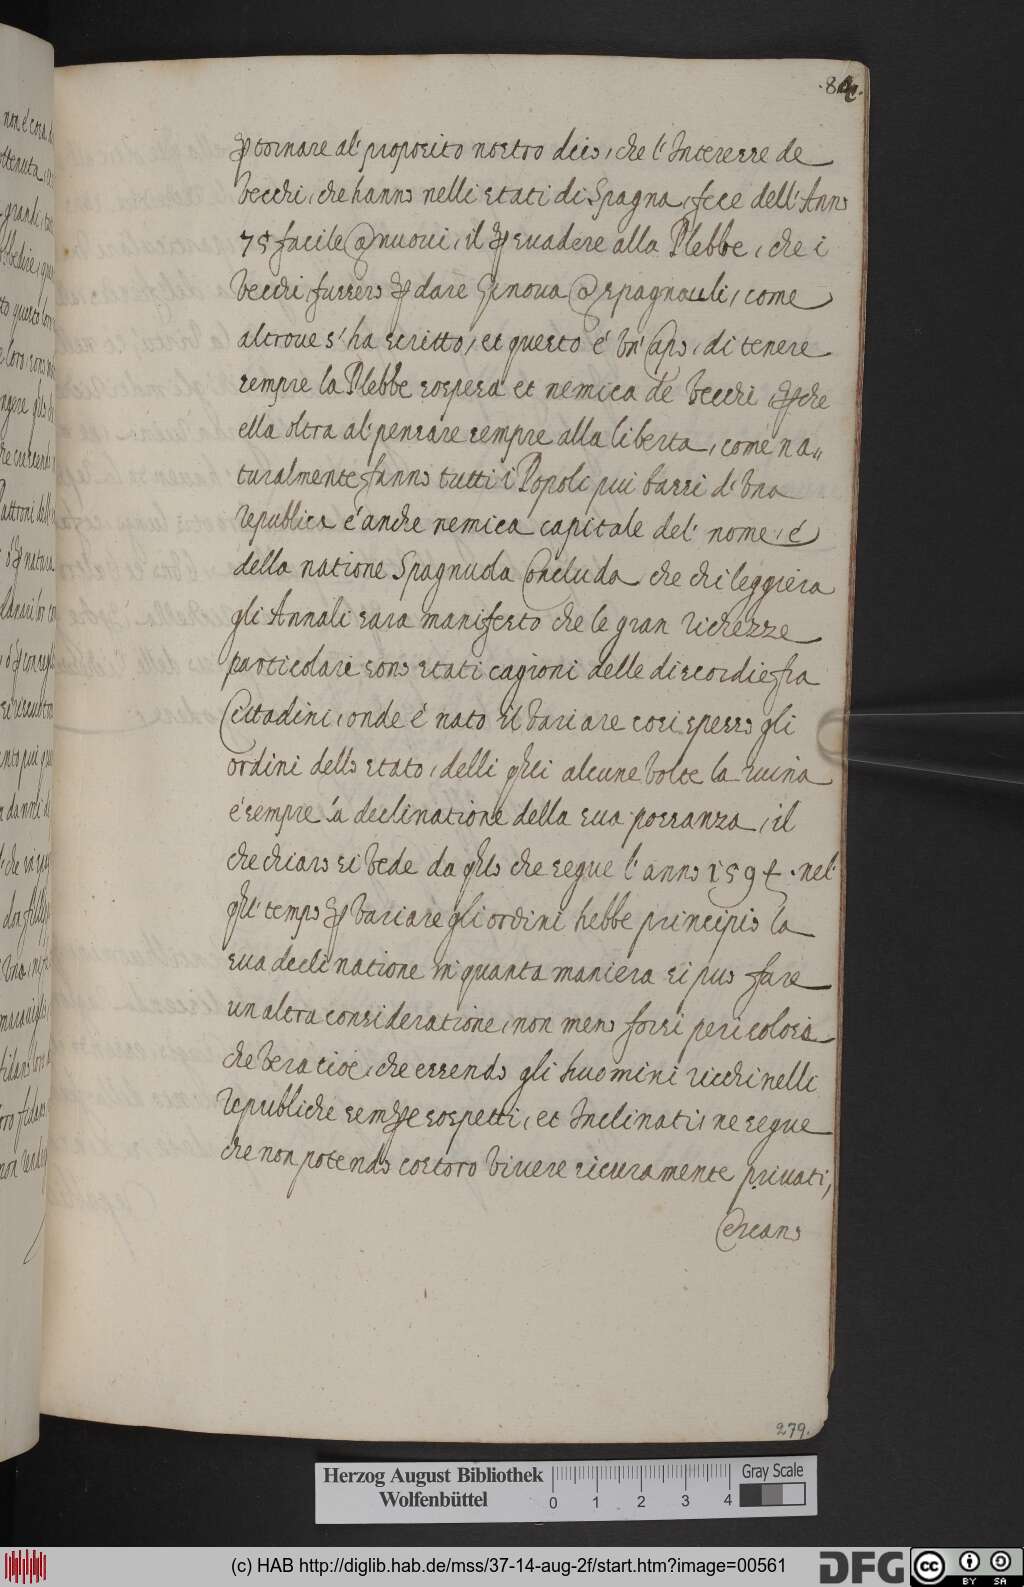 .84.
ꝑ tornare al' proposito nostro dico, che l'Interesse de
Vecchi, che hanno nelli stati di Spagna, fece dell'Anno
75 facile a nuovi, il ꝑsuadere alla Plebbe, che i
Vecchi fussero ꝑ dare Genova a spagnuoli, come
altroue s'ha scritto, et questo é un' Capo, di tenere
sempre la Plebbe sospesa et nemica de Vecchi, ꝑche
ella oltra al' pensare sempre alla liberta, come na„
turalmente fanno tutti i Popoli piu bassi d'una
republica é anche nemica capitale del' nome, é
della natione Spagnuola Concludo che chi leggiera
gli Annali sara manifesto che le gran richezze
particolari sono stati cagioni delle discordie fra
Cittadini, onde é nato il variare cosi spesso gli
ordini dello stato, delli qꝉi alcune volte la ruina
é sempre la declinatione della sua possanza, il
che chiaro si vede da qꝉlo che segue l'anno 1594. nel'
qꝉ tempo ꝑ variare gli ordini hebbe principio la
sua declinatione in quanta maniera si puo fare
un altra consideratione, non meno forsi pericolosa
che vera cioé, che essendo gli huomini ricchi nelli
republiche semꝑe sospetti, et Inclinati, ne segue
che non potendo costoro vivere sicuramente privati,
Cercano
279.
non é cosa
ottenuta
grandi
Herzog August Bibliothek
Wolfenbüttel
0 1 2 3 4
Gray Scale
(c) HAB http://diglib.hab.de/mss/37-14-aug-2f/start.htm?image=00561
DFG
cc BY SA